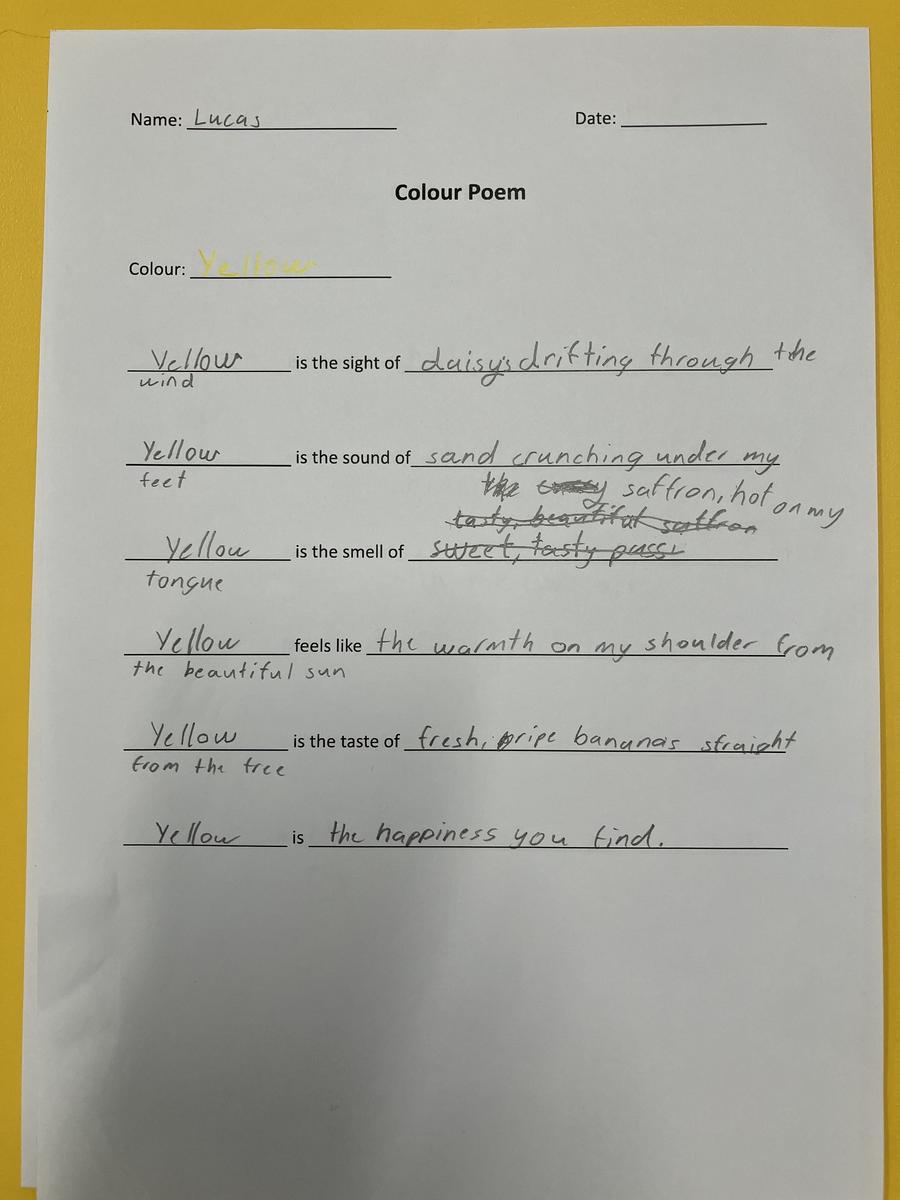 Name: Lucas Date:
Colour Poem
Colour: Yellow
Yellow is the sight of daisy's drifting through the
wind
Yellow is the sound of sand crunching under my
feet
the saffron, hot on my
tasty, beautiful saffron
Yellow is the smell of sweet, tasty
tongue
Yellow feels like the warmth on my shoulder from
the beautiful sun
Yellow is the taste of fresh, ripe bananas straight
from the tree
Yellow is the happiness you find.